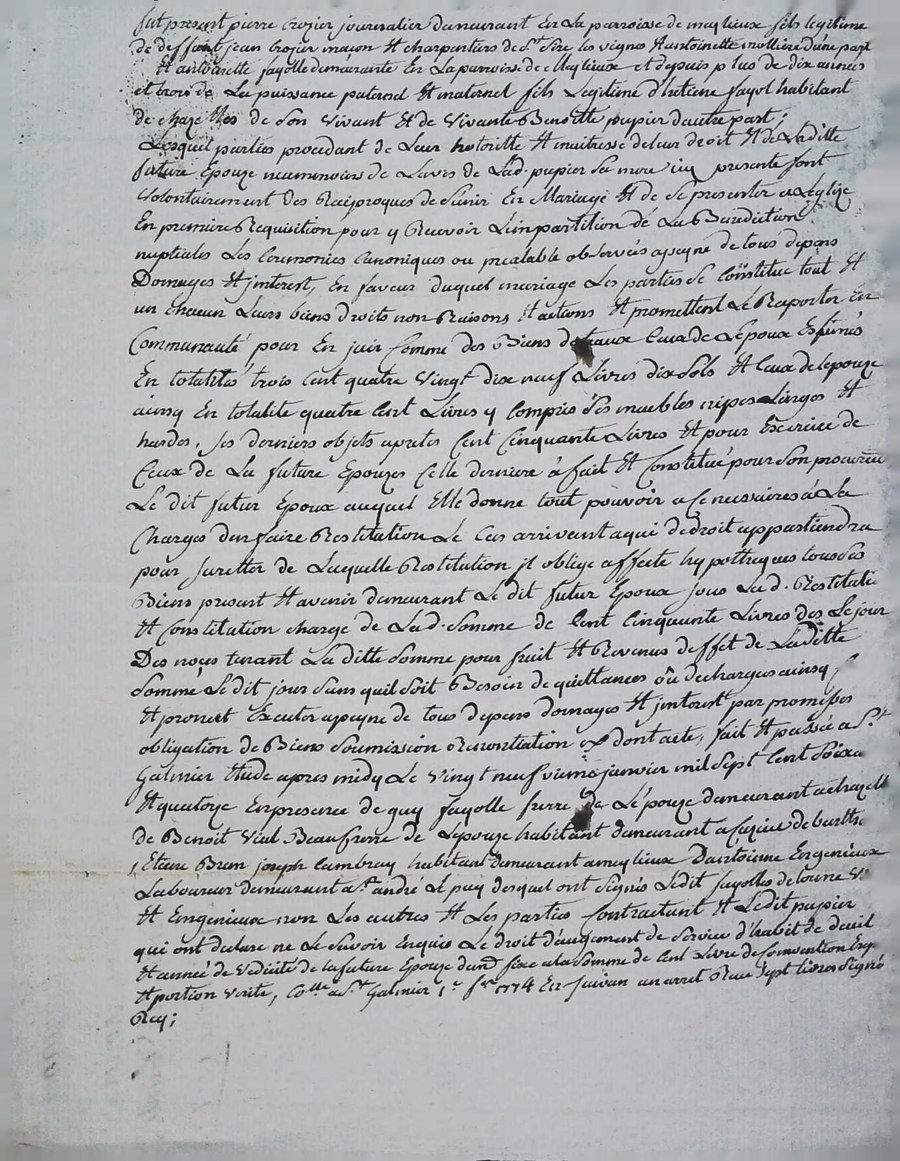 fut present pierre Crozier journalier demeurant En La parroisse de meylieux fils legitime
de deffunt jean Crozier maçon Et charpentiers de St. les vignes Et antoinette mollière d'une part
Et antoinette fayolle demeurante En La parroisse de Meylieux et depuis plus de dix années
et trois de La puissance paternel Et maternel fils Legitime d'Etiene fayol habitant
de chazelles de Son Vivant Et de Vivante Benoitte pupier d'autre part;
Lesquel parties procedant de Leur hotoritte Et maitresse de leur droit Et de Laditte
future Epouze neammoins de Lavis de Lad. pupier Sa mere icy presente Sont
Volontairement des Reciproques de Sunir En Mariage Et de Se presenter a Leglize
En premiere Requisition pour y Recevoir Limpartition de La Benediction
nuptiales Les Ceremonies Canoniques ou prealable observées apeyne de tous depens
Domages Et jnterest, En faveur duquel mariage Les parties Se Constitue tout Et
un chacun Leurs biens droits non Raisons Et actions Et promettent Le Raporter En
Communauté pour En juir Comme des Biens Ceux de Lepoux Estimés
En totalités trois Cent quatre Vingt dix neuf Livres dix Sols Et Ceux de lepouze
ainsy En totalite quatre Cent Livres y Compris Ses meubles nipes Linges Et
hardes, Ses derniers objets apretés Cent Cinquante Livres Et pour Exercice de
Ceux de La future Epouzes Celle derniere à fait Et Constitué pour Son procureur
Le dit futur Epoux auquel Elle donne tout pouvoir a Ce necessaires à La
Charges den faire Restitution Le Cas arrivant a qui de droit appartiendra
pour Suretter de Laquelle Restitution jl oblige affecte hypotheques tous Ses
Biens present Et avenir demeurant Le dit futur Epoux Sous Lad. Restitution
Et Constitution charge de Lad. Somme de Cent Cinquante Livres des Le jour
Des noces tenant La ditte Somme pour fruit Et Revenus deffet de Laditte
Somme Le dit jour Sans quil Soit Besoin de quittances ôu decharges ainsy
Et promet Executer apeyne de tous depens domages Et jnterest par promesses
obligation de Biens Soumission Renontiation & dont acte, fait Et passée a St.
Galmier Etude apres midy Le Vingt neufvieme janvier mil Sept Cent Soixante
Et quatorze En presence de guy fayolle frerre de Lépouze demeurant a chazelle
de Benoit Vial Beaufrerre de Lepouze habitant demeurant a
Etiene Brun joseph Cambray habitant demeurant a meylieux Dantoienne Engenieux
Laboureur demeurant a St. andré Le puy desquel ont Signés Ledit fayolles
Et Engenieux non Les autres Et Les parties Contractant Et Ledit pupier
qui ont declaré ne Le Savoir Enquis Le droit daugment de Service d'habit de deuil
Et année de Veduité de la future Epouze fixe a la Somme de Cent Livre de Convention
Et portion Virile, Colle. a St. Galmier 1er fer. 1774 En Suivan un arret Reçu Sept Livres Signé
Rey;